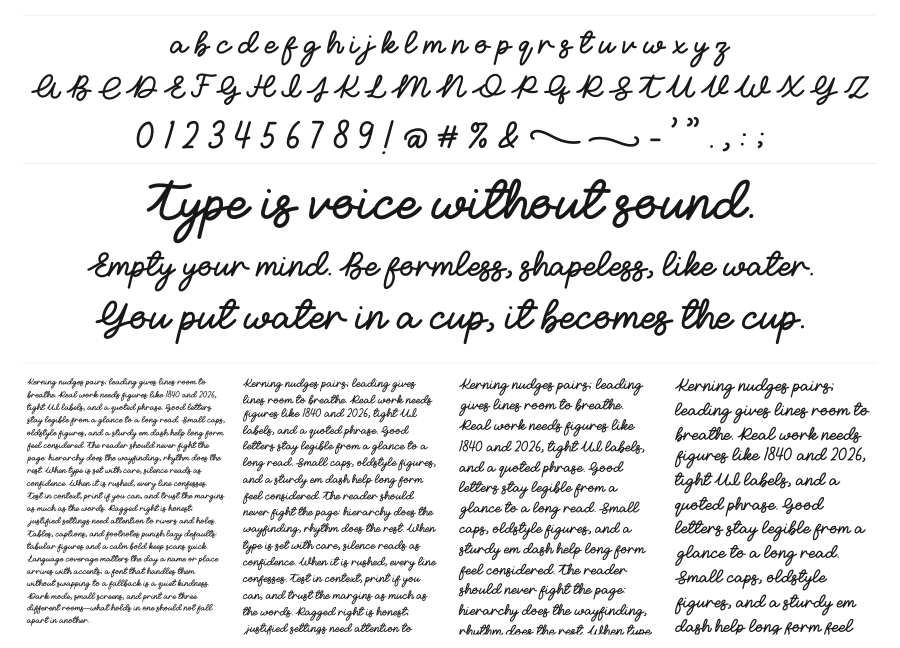 a b c d e f g h i j k l m n o p q r s t u v w x y z
A B C D E F G H I J K L M N O P Q R S T U V W X Y Z
0 1 2 3 4 5 6 7 8 9 ! @ # % & - ’ ” . , : ;
Type is voice without sound.
Empty your mind. Be formless, shapeless, like water.
You put water in a cup, it becomes the cup.
Kerning nudges pairs; leading gives lines room to
breathe. Real work needs figures like 1840 and 2026,
tight UI labels, and a quoted phrase. Good letters
stay legible from a glance to a long read. Small caps,
oldstyle figures, and a sturdy em dash help long form
feel considered. The reader should never fight the
page: hierarchy does the wayfinding, rhythm does the
rest. When type is set with care, silence reads as
confidence. When it is rushed, every line confesses.
Test in context, print if you can, and trust the margins
as much as the words. Ragged right is honest;
justified settings need attention to rivers and holes.
Tables, captions, and footnotes punish lazy defaults:
tabular figures and a calm bold keep scans quick.
Language coverage matters the day a name or place
arrives with accents: a font that handles them
without swapping to a fallback is a quiet kindness.
Dark mode, small screens, and print are three
different rooms—what holds in one should not fall
apart in another.
Kerning nudges pairs; leading gives
lines room to breathe. Real work needs
figures like 1840 and 2026, tight UI
labels, and a quoted phrase. Good
letters stay legible from a glance to a
long read. Small caps, oldstyle figures,
and a sturdy em dash help long form
feel considered. The reader should
never fight the page: hierarchy does the
wayfinding, rhythm does the rest. When
type is set with care, silence reads as
confidence. When it is rushed, every line
confesses. Test in context, print if you
can, and trust the margins as much as
the words. Ragged right is honest;
justified settings need attention to
Kerning nudges pairs; leading
gives lines room to breathe.
Real work needs figures like
1840 and 2026, tight UI labels,
and a quoted phrase. Good
letters stay legible from a
glance to a long read. Small
caps, oldstyle figures, and a
sturdy em dash help long form
feel considered. The reader
should never fight the page:
hierarchy does the wayfinding,
rhythm does the rest. When type
Kerning nudges pairs;
leading gives lines room to
breathe. Real work needs
figures like 1840 and 2026,
tight UI labels, and a
quoted phrase. Good
letters stay legible from a
glance to a long read.
Small caps, oldstyle
figures, and a sturdy em
dash help long form feel